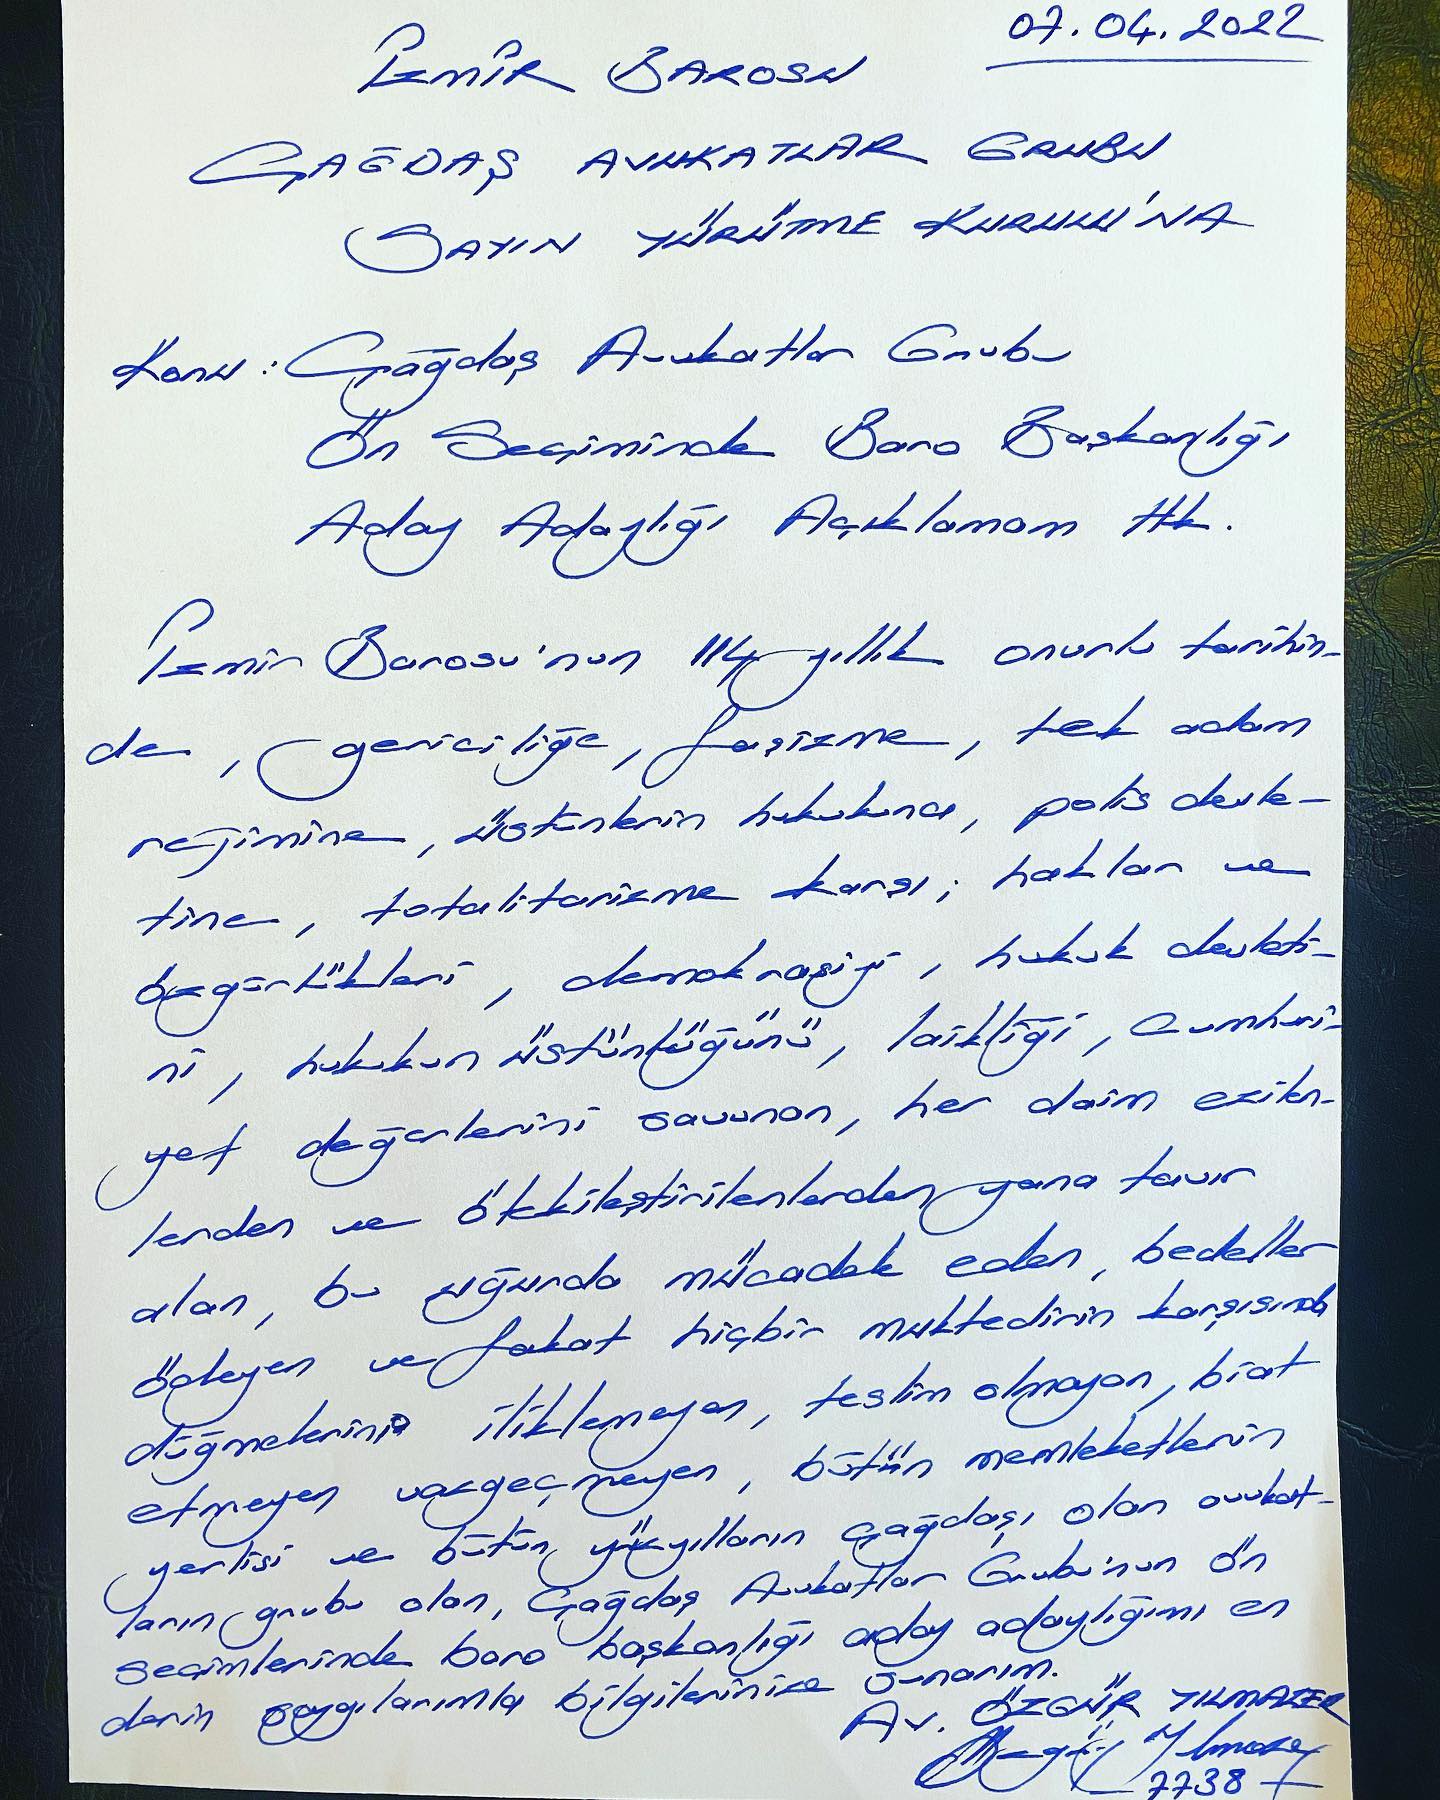 07.04.2022
İZMİR BAROSU
ÇAĞDAŞ AVUKATLAR GRUBU
SAYIN YÜRÜTME KURULU'NA
Konu : Çağdaş Avukatlar Grubu
Ön Seçiminde Baro Başkanlığı
Aday Adaylığı Açıklamam Hk.
İzmir Barosu'nun 114 yıllık onurlu tarihin-
de, gericiliğe, faşizme, tek adam
rejimine, üstünlerin hukukuna, polis devle-
tine, totalitarizme karşı; haklar ve
özgürlükleri, demokrasiyi, hukuk devleti-
ni, hukukun üstünlüğünü, laikliği, Cumhuri-
yet değerlerini savunan, her daim ezilen-
lerden ve ötekileştirilenlerden yana tavır
alan, bu uğurda mücadele eden, bedeller
ödeyen ve fakat hiçbir muktedirin karşısında
düğmelerini iliklemeyen, teslim olmayan, biat
etmeyen vazgeçmeyen, bütün memleketlerin
yerlisi ve bütün yüzyılların çağdaşı olan avukat-
ların grubu olan, Çağdaş Avukatlar Grubu'nun ön
seçimlerinde baro başkanlığı aday adaylığımı en
derin saygılarımla bilgilerinize sunarım.
Av. ÖZGÜR YILMAZER
Özgür Yılmazer
7738